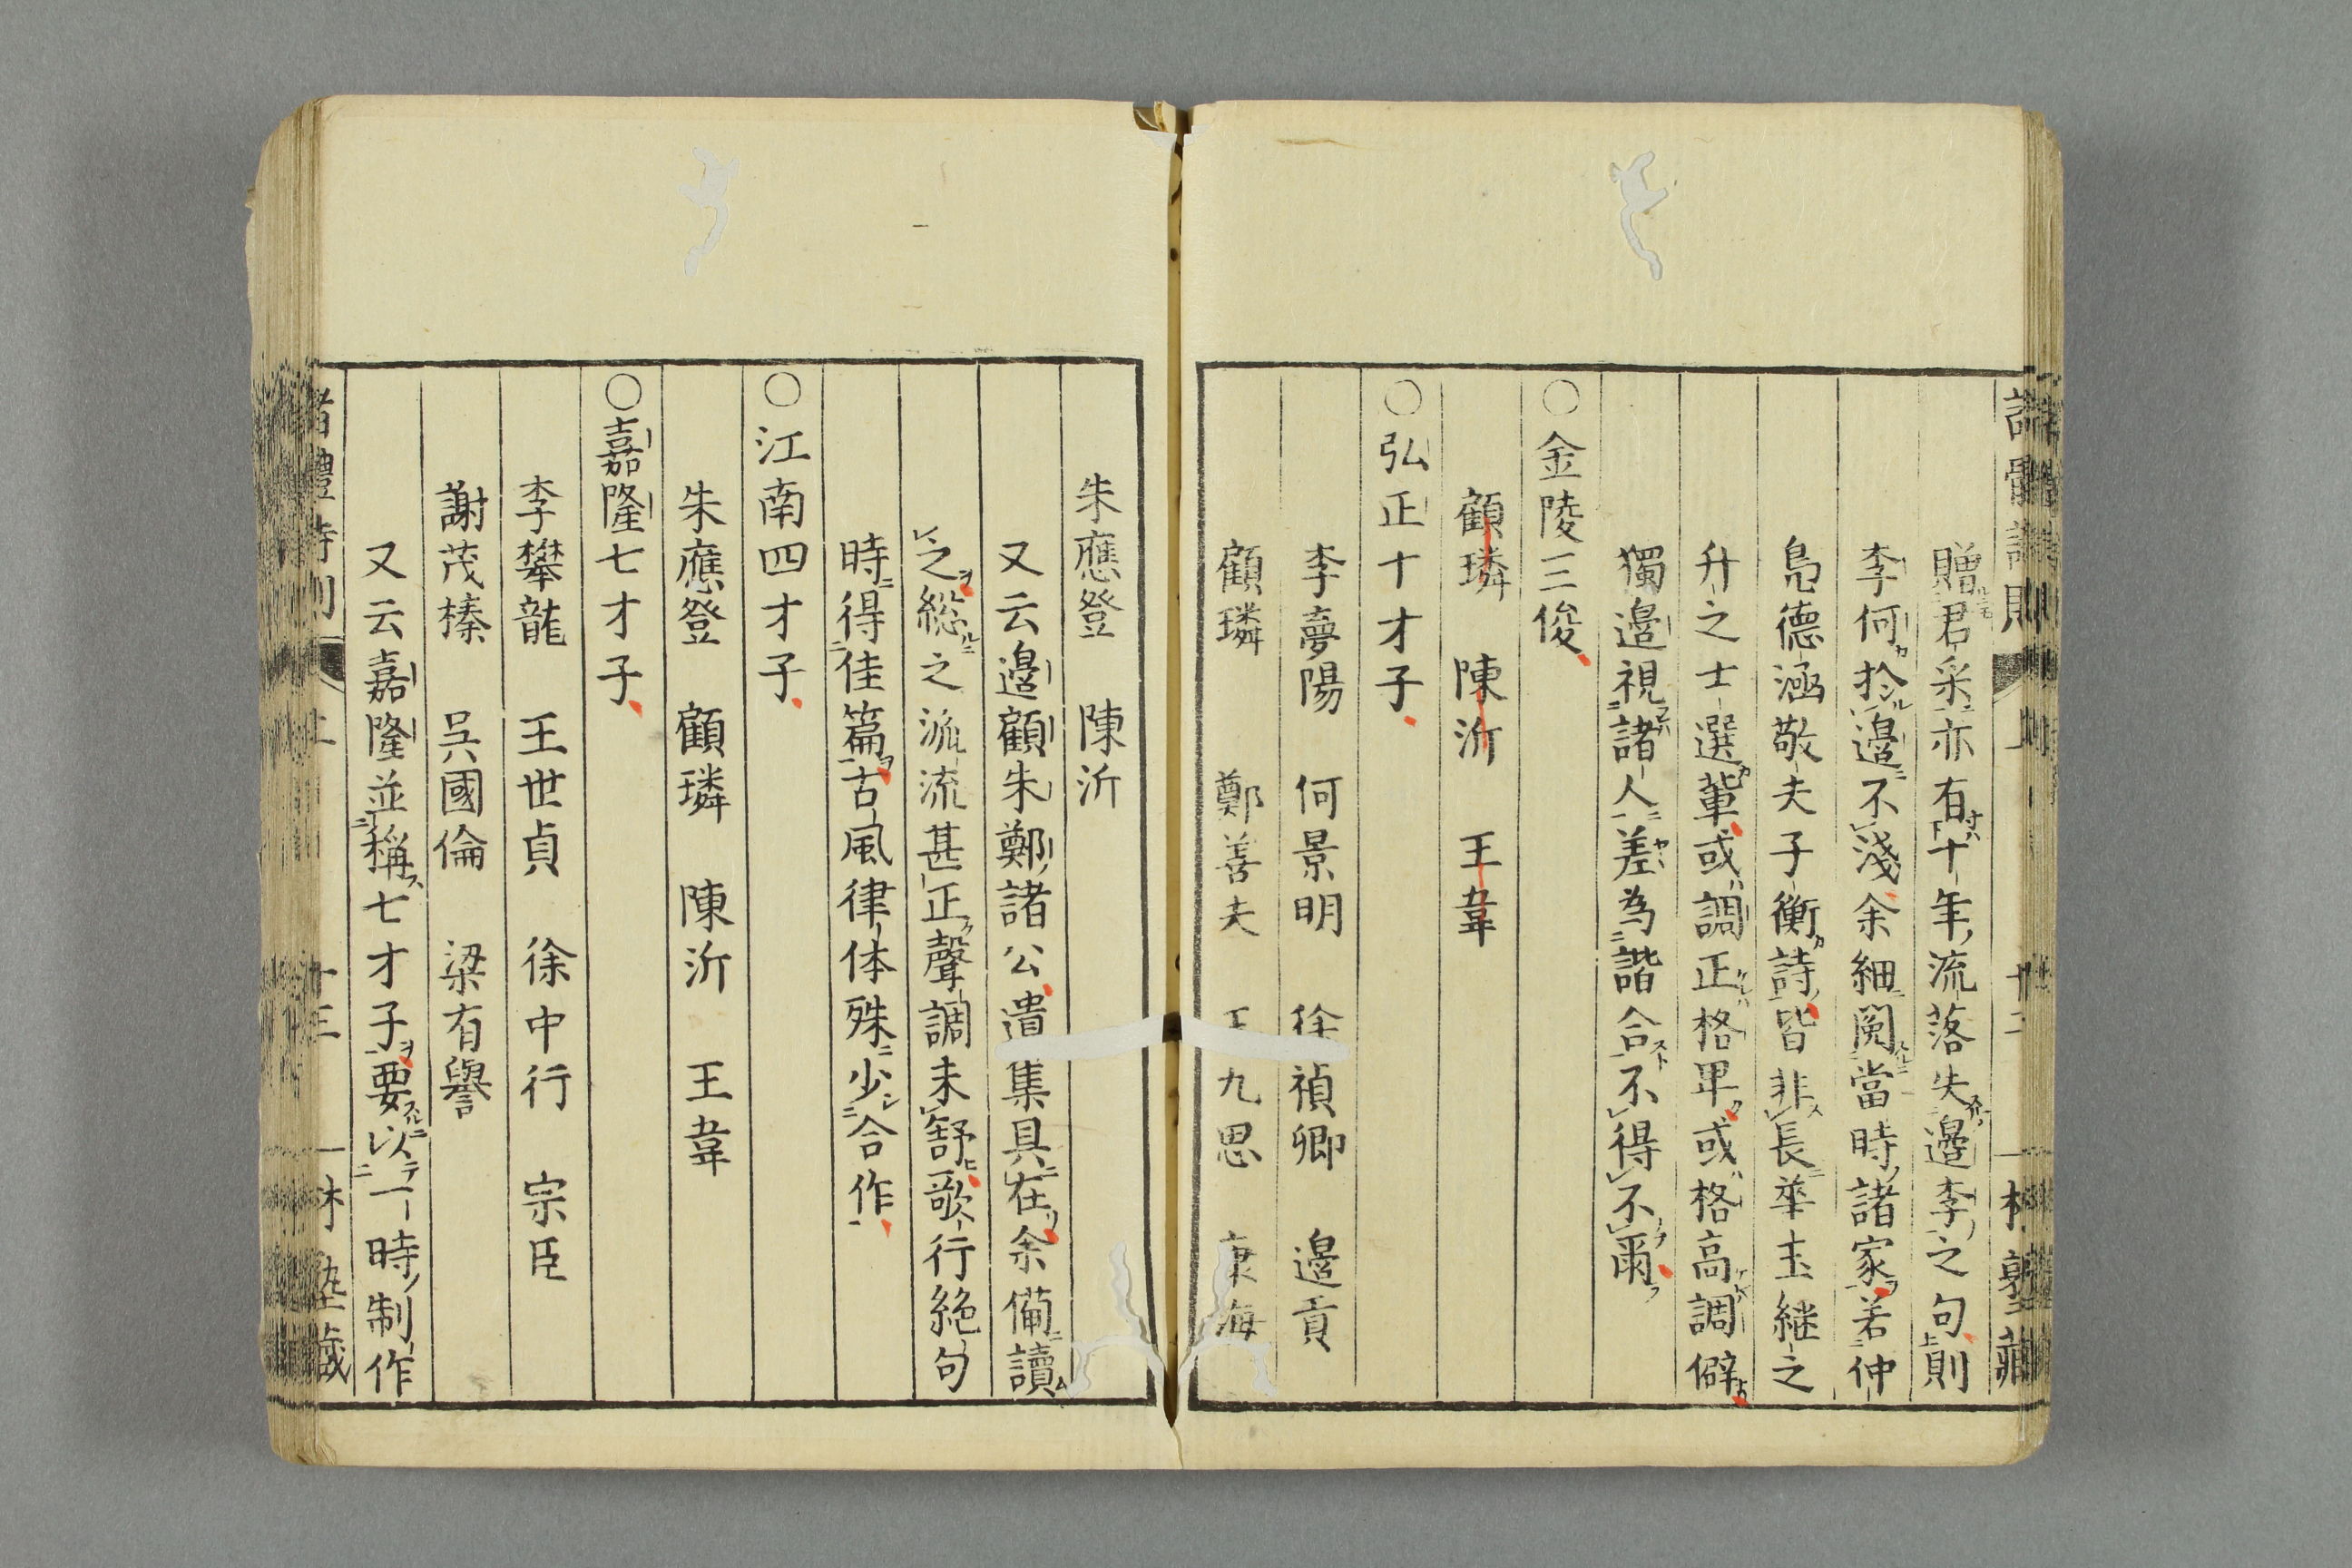 贈君采亦有十年流落失邊李之句則
李何於邊不淺余細閱當時諸家若仲
鳧德涵敬夫子衡詩皆非長華玉継之
升之士選輩或調正格卑或格高調僻
獨邉視諸人差為諧合不得不爾
○金陵三俊
顧璘 陳沂 王韋
○弘正十才子
李夢陽 何景明 徐禎卿 邉貢
顧璘 鄭善夫 王九思 康海
朱應登 陳沂
又云邉顧朱鄭諸公遺集具在余備讀
之総之派流甚正聲調未舒歌行絶句
時得佳篇古風律体殊少合作
○江南四才子
朱應登 顧璘 陳沂 王韋
○嘉隆七才子
李攀龍 王世貞 徐中行 宗臣
謝茂榛 呉國倫 梁有譽
又云嘉隆並稱七才子要以一時制作